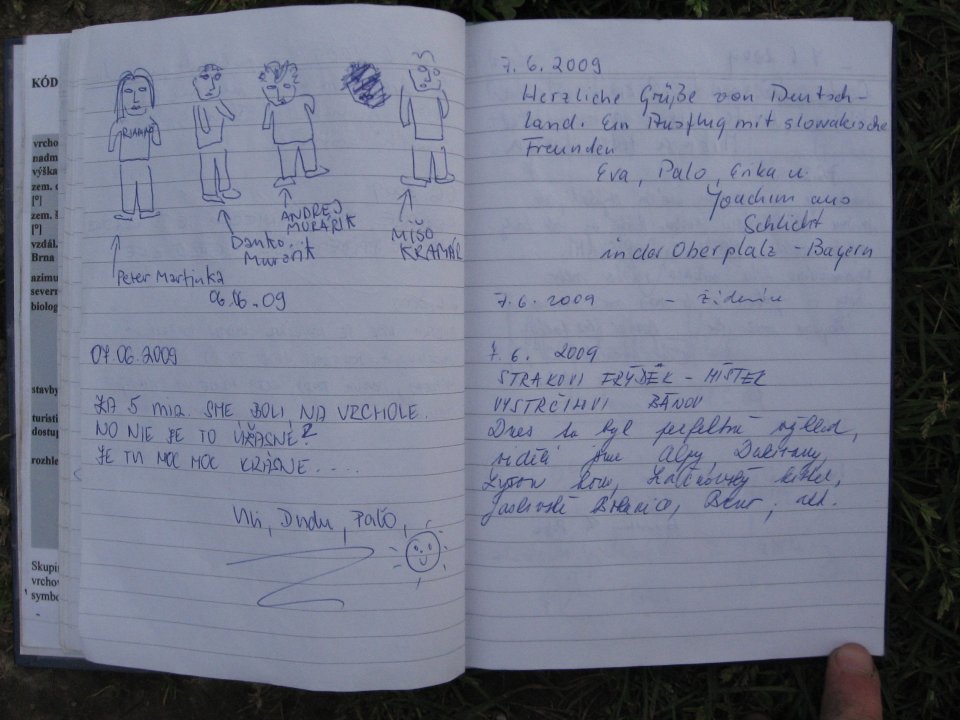 KÓD
vrcho
nadm
výška
zem.
[°]
zem. š
[°]
vzdál.
Brna
azimu
severn
biolog
stavby
turisti
dostup
rozhle
Skupi
vrchov
symbo
ANDREJ
MURÁRIK
Danko
Murárik
MIŠO
KRAMÁR
Peter Martinka
06.06.09
07.06.2009
ZA 5 min. SME BOLI NA VRCHOLE.
NO NIE JE TO ÚŽASNÉ?
JE TU MOC MOC KRÁSNE.....
Uli, Dudu, Paľo,
7.6.2009
Herzliche Grüße von Deutsch-
land. Ein Ausflug mit slowakische
Freunden
Eva, Palo, Erika u.
Joachim aus
Schlicht
in der Oberpfalz - Bayern
7.6.2009 - Židenice
7.6. 2009
STRAKOVI FRÝDEK - MÍSTEK
VYSTRČILOVI BÁNOV
Dnes to byl perfektní výhled,
viděli jsme Alpy, Dukovany,
Lysou horu,
Jaslovské Bohunice, Brno,